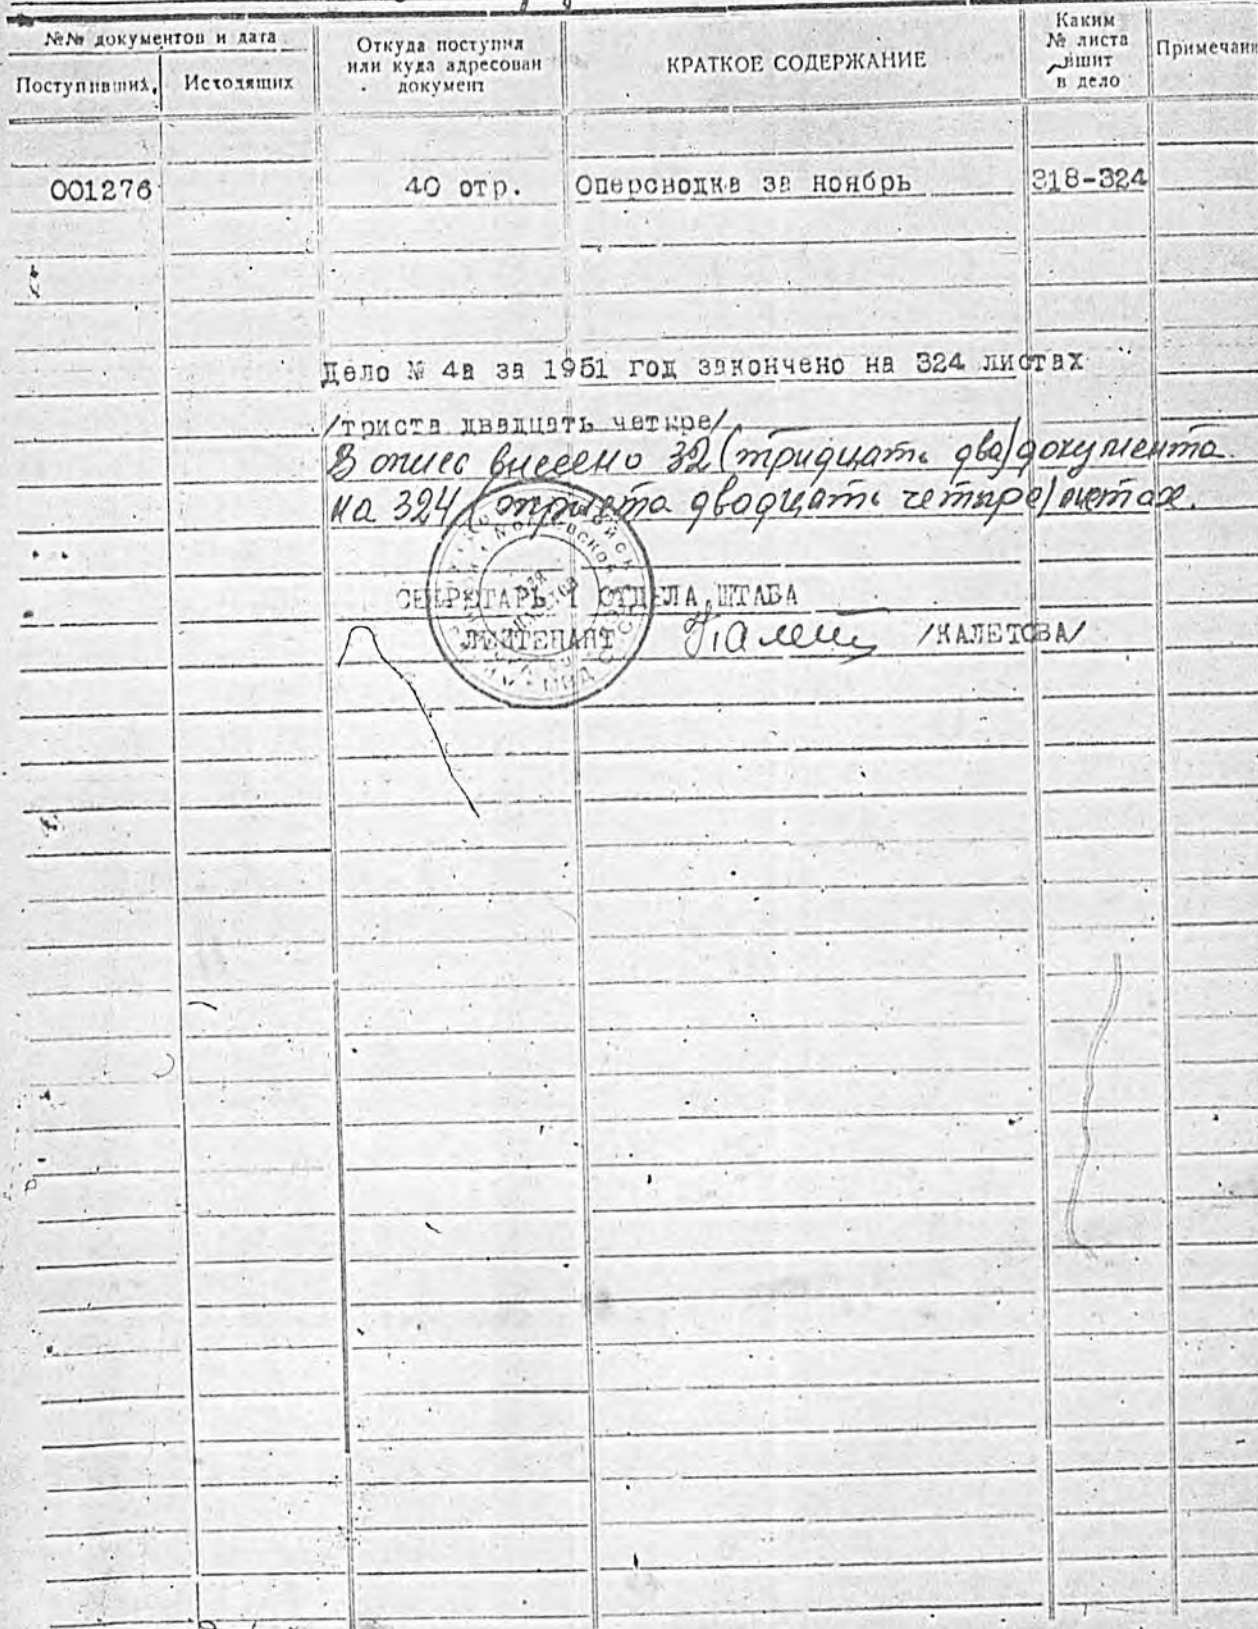 №№ документов и дата
Поступивших
Исходящих
Откуда поступил
или куда адресован
документ
КРАТКОЕ СОДЕРЖАНИЕ
Каким
№ листа
вшит
в дело
Примечани
001276
40 отр.
Оперсводка за ноябрь
318-324
Дело № 4а за 1951 год закончено на 324 листах
/триста двадцать четыре/
В опись внесено 32 (тридцать два/ документа
на 324 (триста двадцать четыре/ листах.
СЕКРЕТАРЬ 1 ОТДЕЛА ШТАБА
ЛЕЙТЕНАНТ /КАЛЕТОВА/